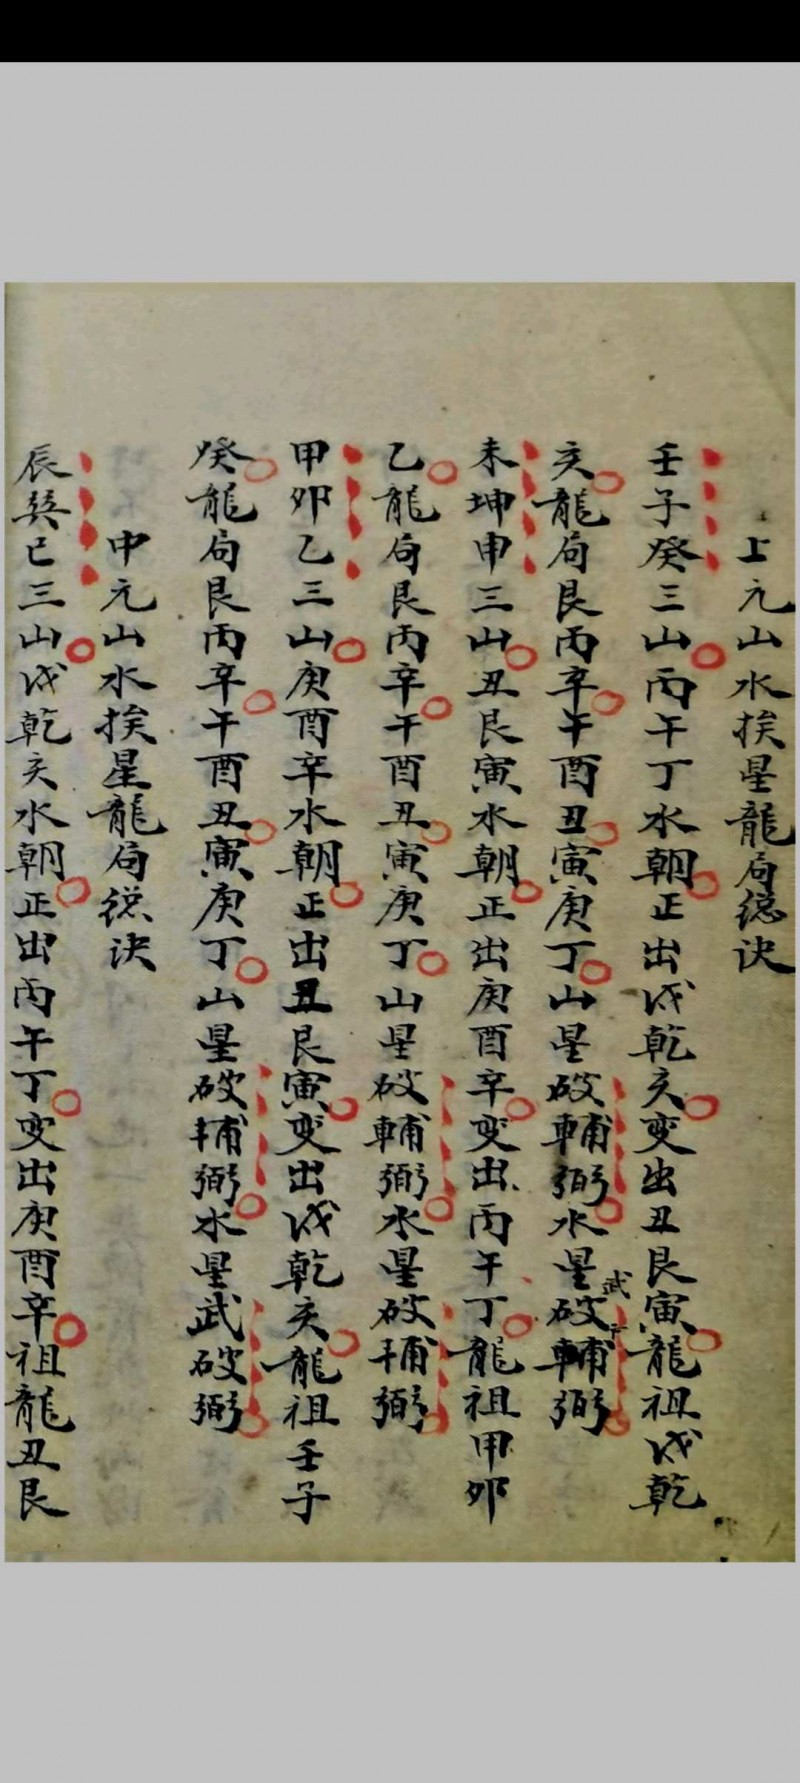 上元山水挨星龍局總訣
壬子癸三山丙午丁水朝正出戌乾亥变出丑艮寅龍祖戌乾
亥龍局艮丙辛午酉丑寅庚丁山星破輔弼水星破輔弼
武
未坤申三山丑艮寅水朝正出庚酉辛变出丙午丁龍祖甲卯
乙龍局艮丙辛午酉丑寅庚丁山星破輔弼水星破輔弼
甲卯乙三山庚酉辛水朝正出丑艮寅变出戌乾亥龍祖壬子
癸龍局艮丙辛午酉丑寅庚丁山星破輔弼水星武破弼
中元山水挨星龍局總訣
辰巽巳三山戌乾亥水朝正出丙午丁变出庚酉辛祖龍丑艮